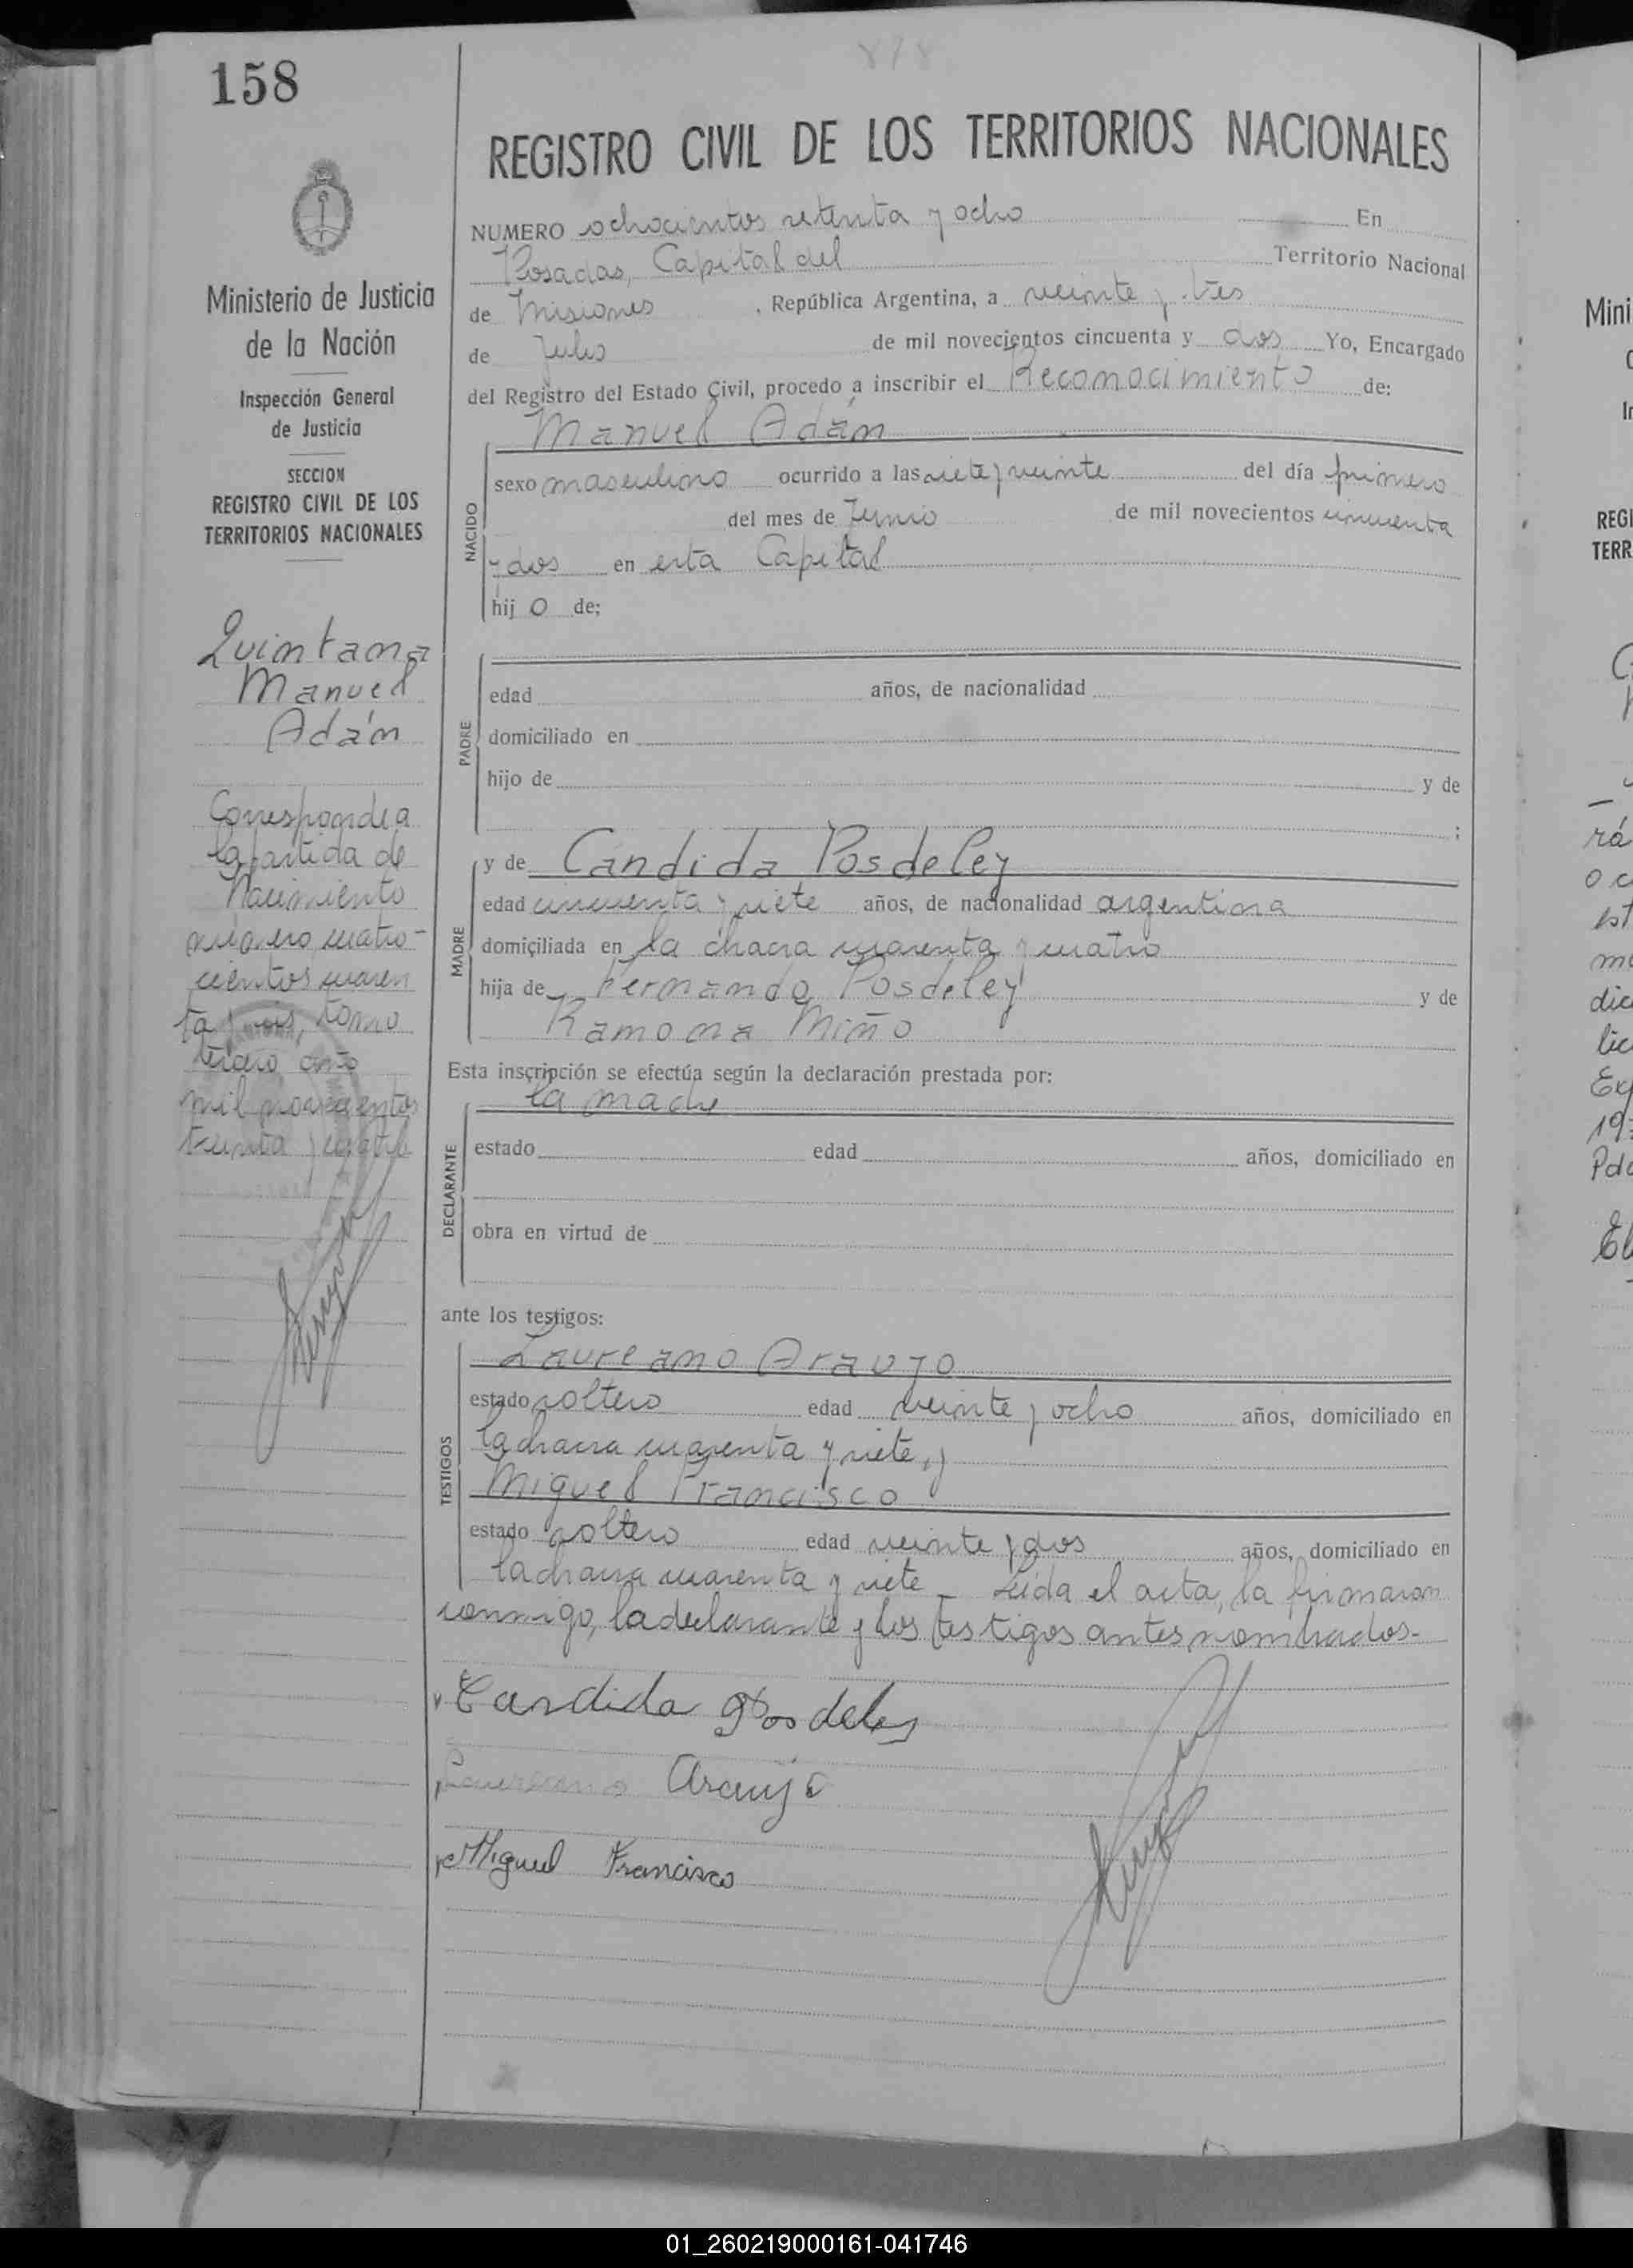 158
878
REGISTRO CIVIL DE LOS TERRITORIOS NACIONALES
Ministerio de Justicia
de la Nación
Inspección General
de Justicia
SECCION
REGISTRO CIVIL DE LOS
TERRITORIOS NACIONALES
Quintana
Manuel
Adán
Corresponde a
la partida de
Nacimiento
número cuatro-
cientos cuaren
ta y seis, tomo
tercero año
mil novecientos
treinta y cuatro
NUMERO ochocientos setenta y ocho En
Posadas, Capital del Territorio Nacional
de Misiones , República Argentina, a veinte y tres
de Julio de mil novecientos cincuenta y dos Yo, Encargado
del Registro del Estado Civil, procedo a inscribir el Reconocimiento de:
Manuel Adán
NACIDO
sexo masculino ocurrido a las siete y veinte del día primero
del mes de Junio de mil novecientos cincuenta
y dos en esta Capital
hij o de;
PADRE
edad años, de nacionalidad
domiciliado en
hijo de y de
;
MADRE
y de Candida Posdeley
edad cincuenta y siete años, de nacionalidad argentina
domiciliada en la chacra cuarenta y cuatro
hija de Fernando Posdeley y de
Ramona Miño
Esta inscripción se efectúa según la declaración prestada por:
la madre
DECLARANTE
estado edad años, domiciliado en
obra en virtud de
ante los testigos:
TESTIGOS
Laureano Araujo
estado soltero edad veinte y ocho años, domiciliado en
la chacra cuarenta y siete, y
Miguel Francisco
estado soltero edad veinte y dos años, domiciliado en
la chacra cuarenta y siete - Leida el acta, la firmaron
conmigo, la declarante y los testigos antes nombrados-
Candida Posdeley
Laureano Araujo
Miguel Francisco
Mini
REGI
TERR
rá
est
dic
Exp
Pda
01_260219000161-041746